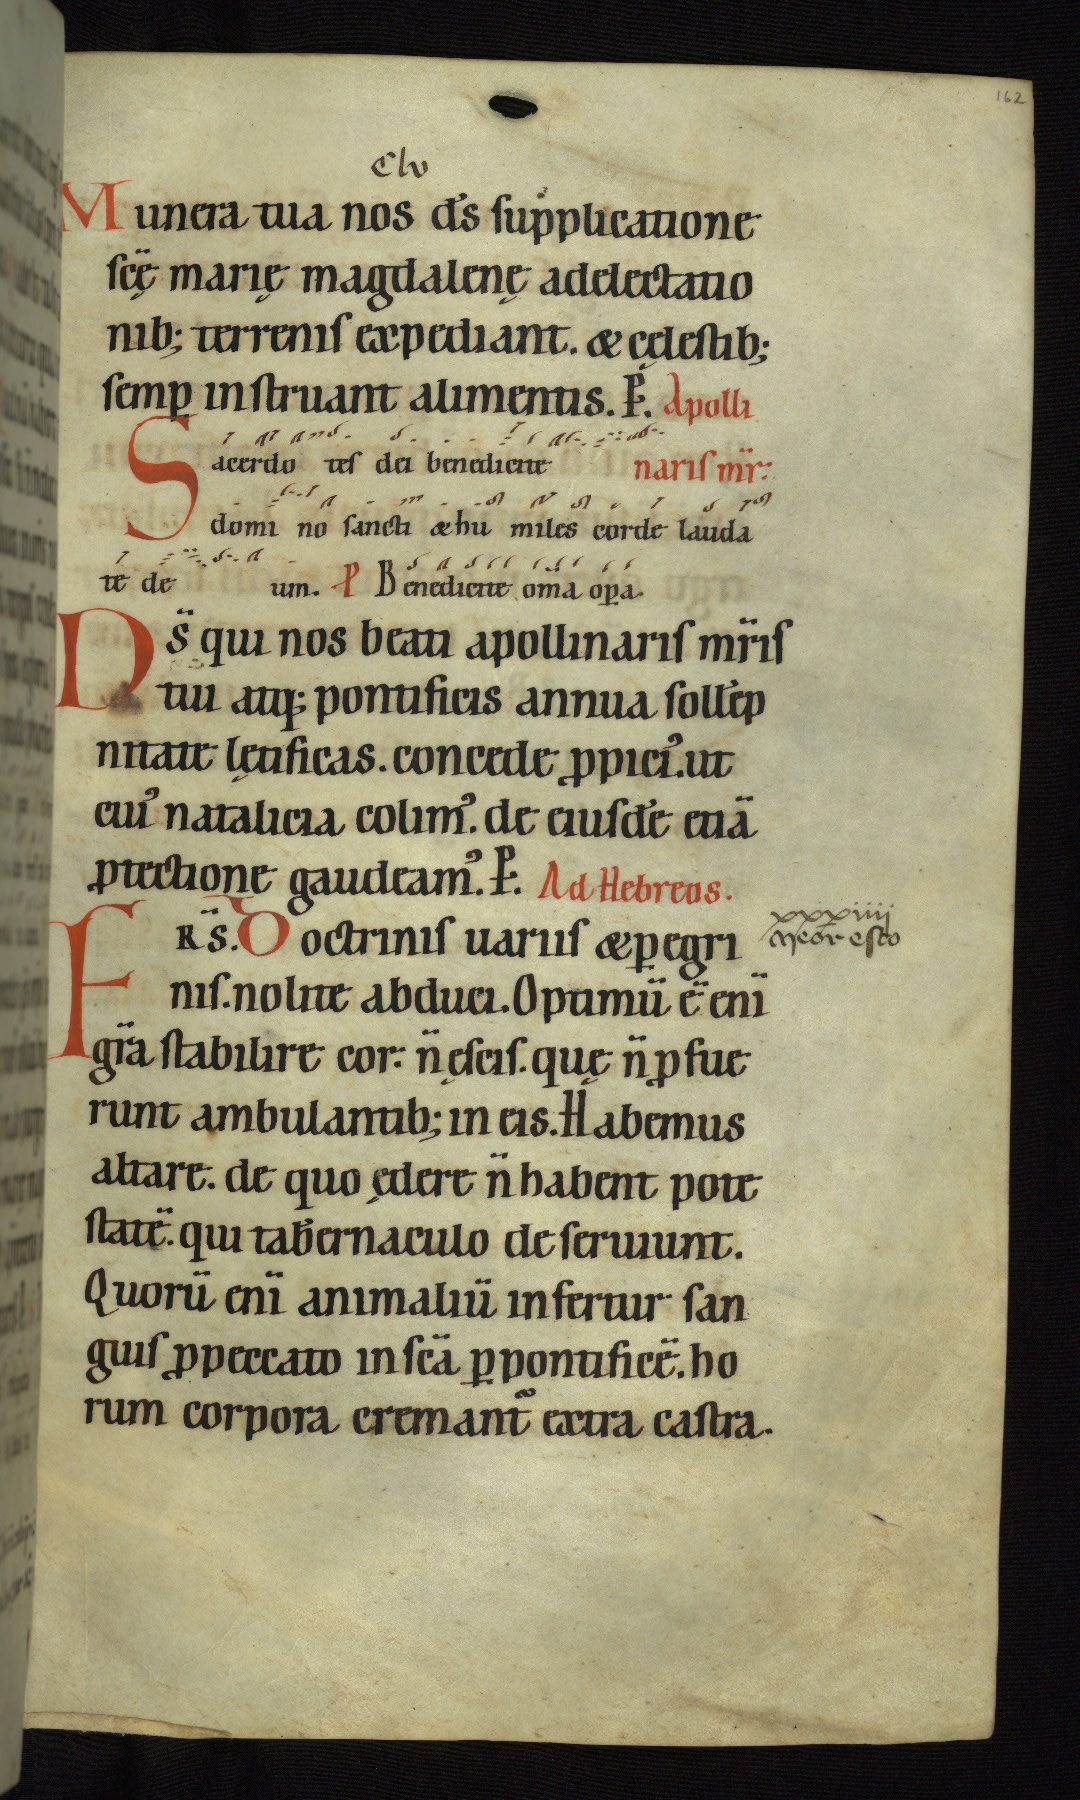 162
Clv
Munera tua nos d̄s supplicatione
sc̄ę marię magdalenę adelectatio
nib; terrenis expediant. & cęlestib;
semꝑ instruant alimentis. P̄. Apolli
Sacerdo tes dei benedicite naris mr̄:
domi no sancti & hu miles corde lauda
te de um. P Benedicite om̄a oꝑa.
Ds̄ qui nos beati apollinaris mr̄is
tui atq; pontificis annua sollēp
nitate lętificas. concede ꝓpici᾽. ut
cui᾽ natalicia colim᾽. de eiusdē etiā
ꝓtectione gaudeam᾽. P̄. Ad Hebreos.
FRS̄. Doctrinis uariis & ꝑegri
nis. nolite abduci. Optimū ē enī
gr̄a stabilire cor: n̄ ęscis. quę n̄ ꝓfue
runt ambulantib; in eis. Habemus
altare. de quo ędere n̄ habent pote
statē. qui tab̄ernaculo deseruiunt.
Quorū enī animaliū infertur san
guis ꝓ peccato in sc̄a ꝑ pontificē. ho
rum corpora cremant᷑ extra castra.
xxxiiii